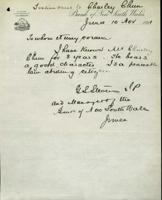 Testimonial to Charley Chun
Bank of New South Wales
Junee 10 Nov 1901
To whom it may concern
I have known Mr Charley
Chun for 3 years. He bears
a good character & is a peaceable
law abiding citizen
J P
and Manager of the
Bank of New South Wales
Junee